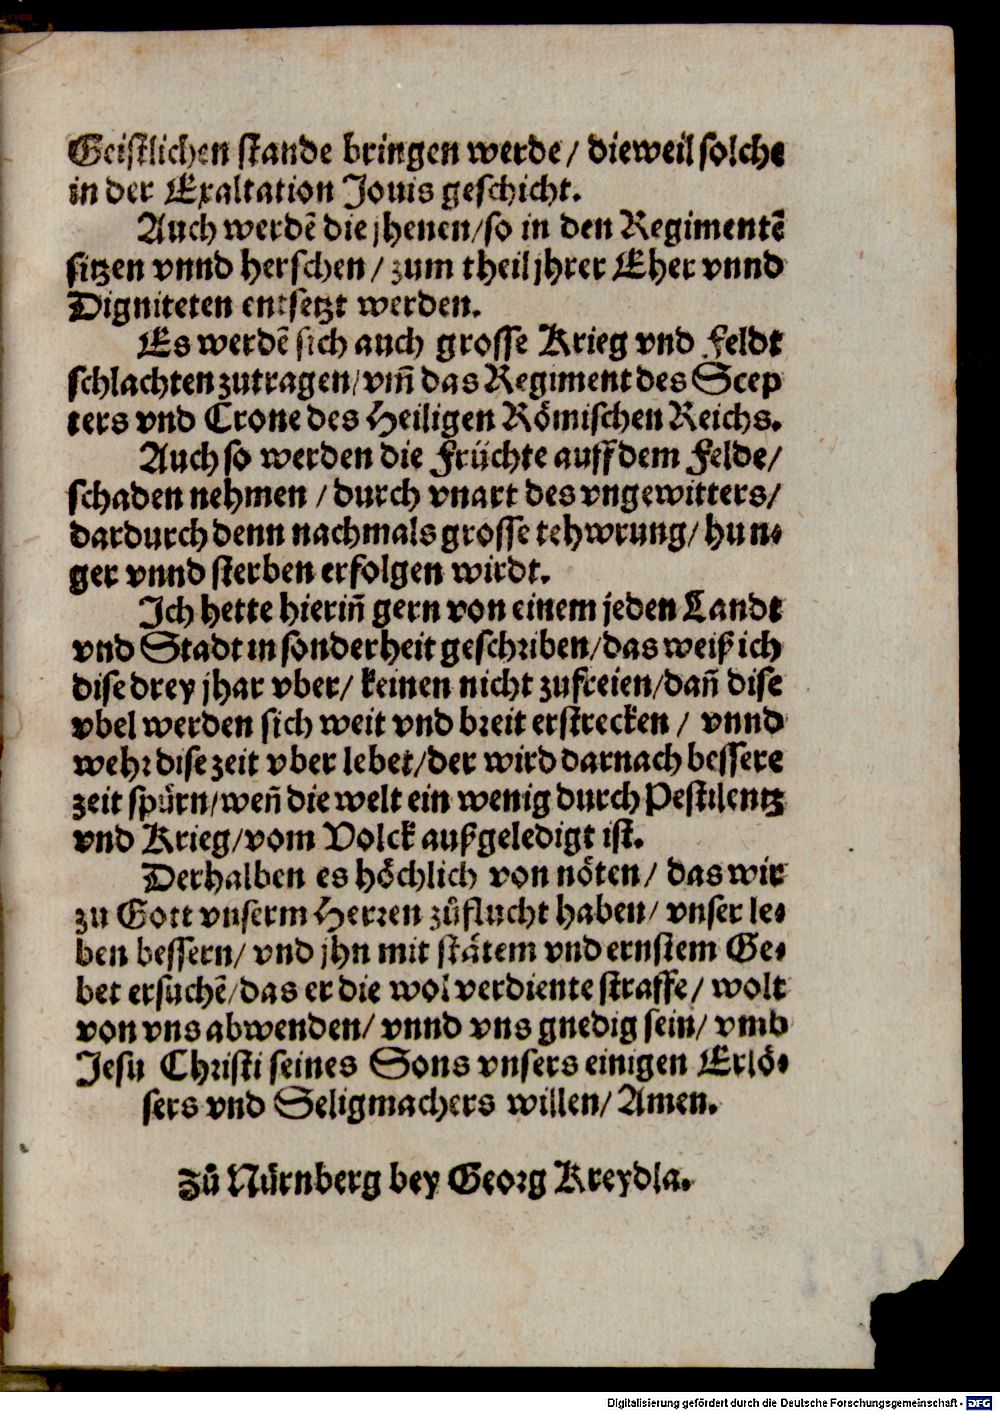 Geistlichen stande bringen werde/ dieweil solche
in der Exaltation Jouis geschicht.
Auch werdẽ die jhenen/so in den Regimentẽ
sitzen vnnd herschen/ zum theil jhrer Eher vnnd
Digniteten entsetzt werden.
Es werdẽ sich auch grosse Krieg vnd Feldt
schlachten zutragen/vm̃ das Regiment des Scep
ters vnd Crone des Heiligen Römischen Reichs.
Auch so werden die Früchte auff dem Felde/
schaden nehmen / durch vnart des vngewitters/
dardurch denn nachmals grosse tehwrung/ hun⸗
ger vnnd sterben erfolgen wirdt.
Ich hette hieriñ gern von einem jeden Landt
vnd Stadt in sonderheit geschriben/das weiß ich
dise drey jhar vber/ keinen nicht zufreien/dañ dise
vbel werden sich weit vnd breit erstrecken / vnnd
wehr dise zeit vber lebet/der wird darnach bessere
zeit spürn/weñ die welt ein wenig durch Pestilentz
vnd Krieg/vom Volck außgeledigt ist.
Derhalben es höchlich von nöten/ das wir
zu Gott vnserm Herren zůflucht haben/ vnser le⸗
ben bessern/ vnd jhn mit stätem vnd ernstem Ge⸗
bet ersuchẽ/das er die wol verdiente straffe/ wolt
von vns abwenden/ vnnd vns gnedig sein/ vmb
Jesu Christi seines Sons vnsers einigen Erlö⸗
sers vnd Seligmachers willen/ Amen.
Zů Nürnberg bey Georg Kreydla.
Digitalisierung gefördert durch die Deutsche Forschungsgemeinschaft - DFG